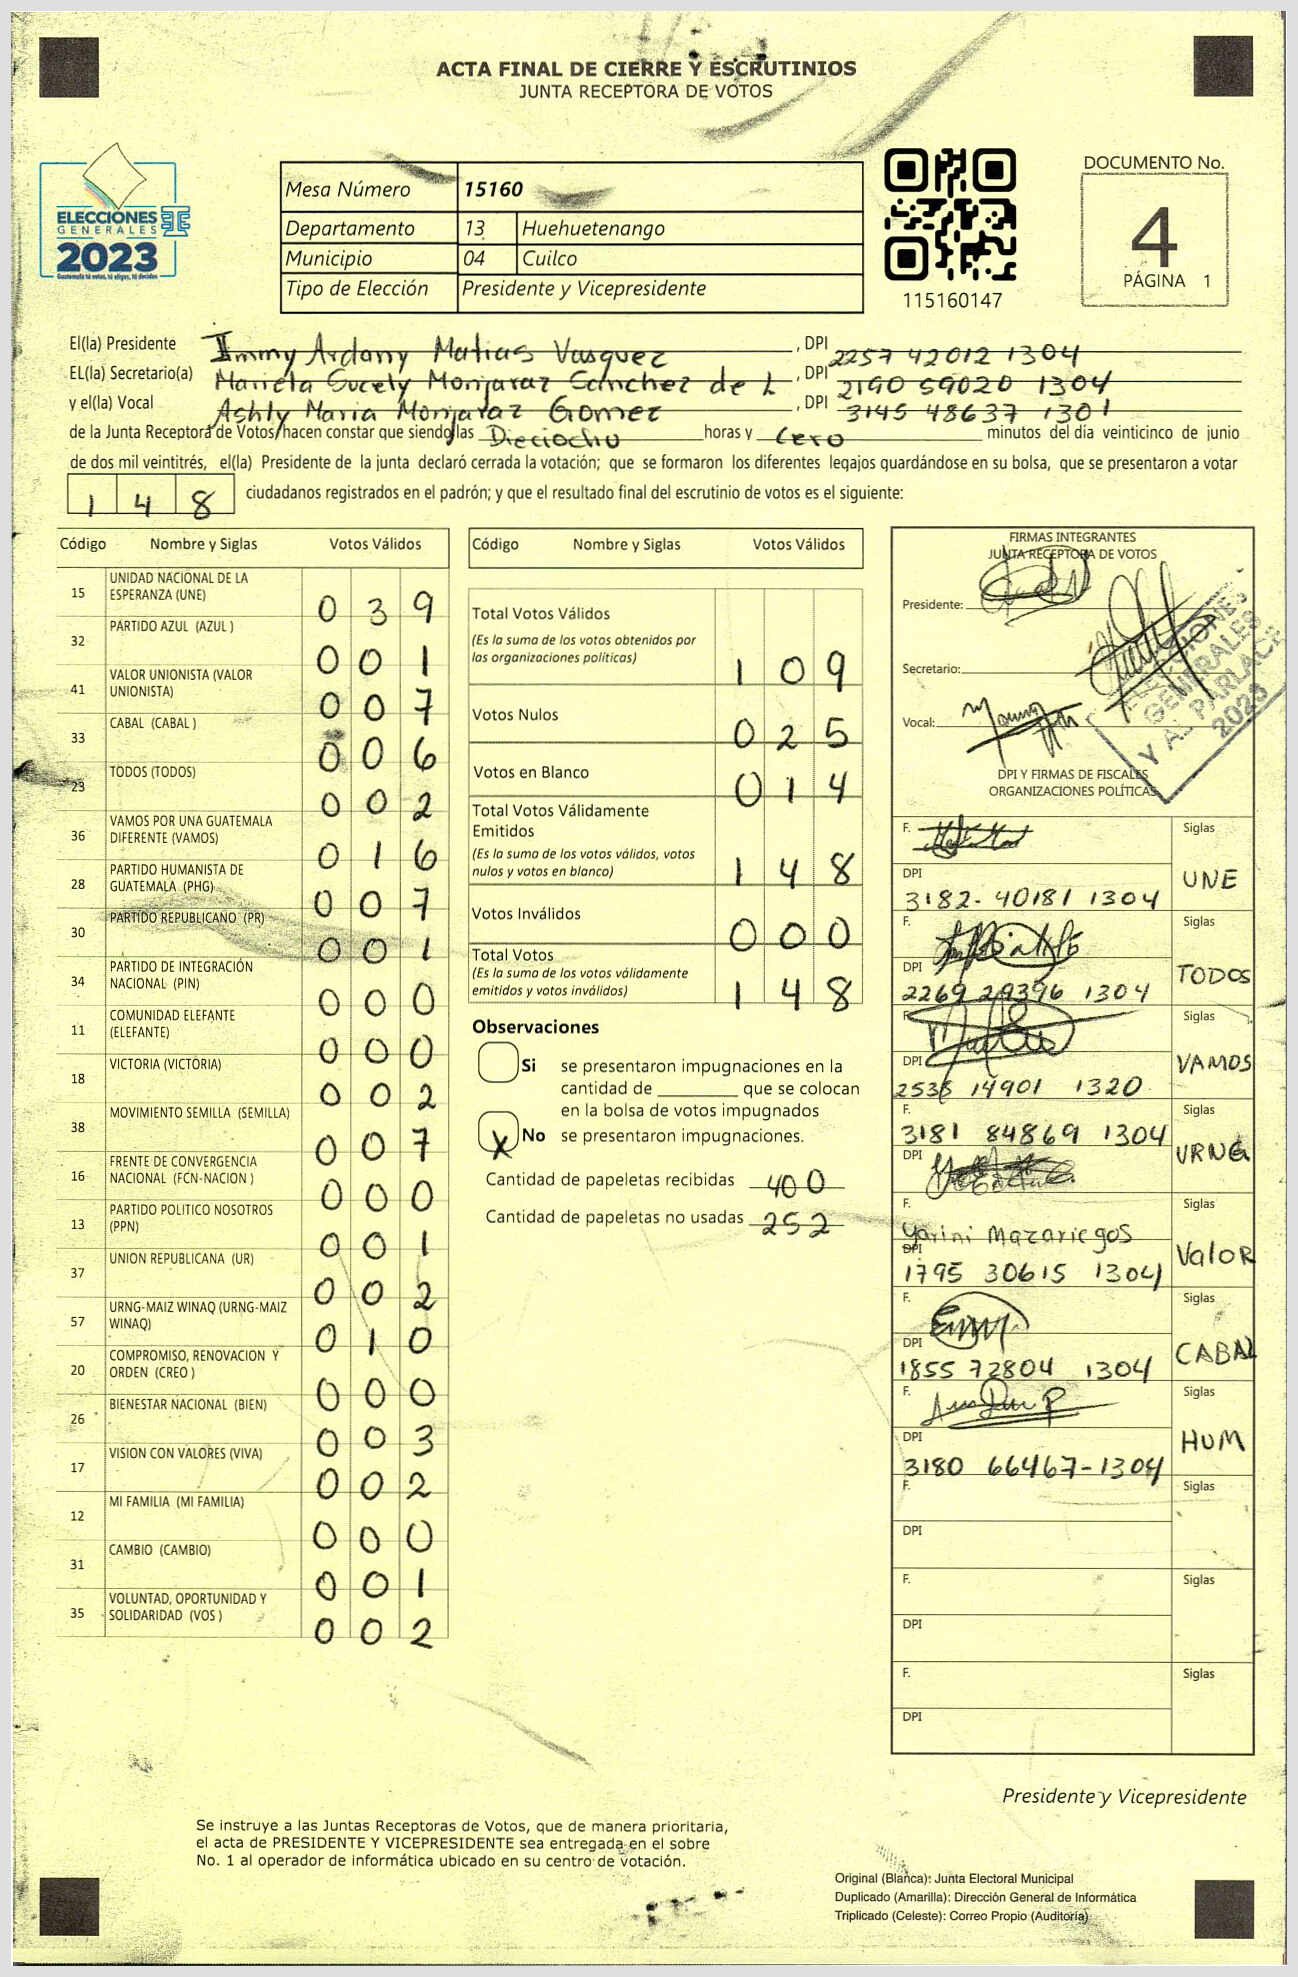 ACTA FINAL DE CIERRE Y ESCRUTINIOS
JUNTA RECEPTORA DE VOTOS
ELECCIONES
GENERALES
2023
Guatemala tú votas, tú eliges, tú decides
Mesa Número 15160
Departamento 13 Huehuetenango
Municipio 04 Cuilco
Tipo de Elección Presidente y Vicepresidente
115160147
DOCUMENTO No.
4
PÁGINA 1
El(la) Presidente Immy Ardany Matias Vasquez, DPI 2257 42012 1304
EL(la) Secretario(a) Mariela Sucely Monjaraz Sanchez de L, DPI 2190 59020 1304
y el(la) Vocal Ashly Maria Monjaraz Gomez, DPI 3145 48637 1301
de la Junta Receptora de Votos, hacen constar que siendo las Dieciocho horas y cero minutos del día veinticinco de junio
de dos mil veintitrés, el(la) Presidente de la junta declaró cerrada la votación; que se formaron los diferentes legajos guardándose en su bolsa, que se presentaron a votar
148 ciudadanos registrados en el padrón; y que el resultado final del escrutinio de votos es el siguiente:
Código Nombre y Siglas Votos Válidos
15 UNIDAD NACIONAL DE LA ESPERANZA (UNE) 039
32 PARTIDO AZUL (AZUL ) 001
41 VALOR UNIONISTA (VALOR UNIONISTA) 007
33 CABAL (CABAL ) 006
23 TODOS (TODOS) 002
36 VAMOS POR UNA GUATEMALA DIFERENTE (VAMOS) 016
28 PARTIDO HUMANISTA DE GUATEMALA (PHG) 007
30 PARTIDO REPUBLICANO (PR) 001
34 PARTIDO DE INTEGRACIÓN NACIONAL (PIN) 000
11 COMUNIDAD ELEFANTE (ELEFANTE) 000
18 VICTORIA (VICTORIA) 002
38 MOVIMIENTO SEMILLA (SEMILLA) 007
16 FRENTE DE CONVERGENCIA NACIONAL (FCN-NACION ) 000
13 PARTIDO POLITICO NOSOTROS (PPN) 001
37 UNION REPUBLICANA (UR) 002
57 URNG-MAIZ WINAQ (URNG-MAIZ WINAQ) 010
20 COMPROMISO, RENOVACION Y ORDEN (CREO ) 000
26 BIENESTAR NACIONAL (BIEN) 003
17 VISION CON VALORES (VIVA) 002
12 MI FAMILIA (MI FAMILIA) 000
31 CAMBIO (CAMBIO) 001
35 VOLUNTAD, OPORTUNIDAD Y SOLIDARIDAD (VOS ) 002
Código Nombre y Siglas Votos Válidos
Total Votos Válidos
(Es la suma de los votos obtenidos por
las organizaciones políticas) 109
Votos Nulos 025
Votos en Blanco 014
Total Votos Válidamente
Emitidos
(Es la suma de los votos válidos, votos
nulos y votos en blanco) 148
Votos Inválidos 000
Total Votos
(Es la suma de los votos válidamente
emitidos y votos inválidos) 148
Observaciones
Si se presentaron impugnaciones en la
cantidad de ________ que se colocan
en la bolsa de votos impugnados
X No se presentaron impugnaciones.
Cantidad de papeletas recibidas 400
Cantidad de papeletas no usadas 252
FIRMAS INTEGRANTES
JUNTA RECEPTORA DE VOTOS
Presidente:
Secretario:
Vocal:
ELECCIONES
GENERALES
Y AL PARLACE
2023
DPI Y FIRMAS DE FISCALES
ORGANIZACIONES POLÍTICAS
F. Siglas
DPI 3182- 40181 1304 UNE
F. Siglas
DPI 2269 29396 1304 TODOS
F. Siglas
DPI 2535 14901 1320 VAMOS
F. 3181 84869 1304 Siglas
DPI URNG
F. Yarini Mazariegos Siglas
DPI 1795 30615 1304 Valor
F. Siglas
DPI 1855 72804 1304 CABAL
F. Siglas
DPI 3180 66467-1304 HUM
F. Siglas
DPI
F. Siglas
DPI
F. Siglas
DPI
Presidente y Vicepresidente
Se instruye a las Juntas Receptoras de Votos, que de manera prioritaria,
el acta de PRESIDENTE Y VICEPRESIDENTE sea entregada en el sobre
No. 1 al operador de informática ubicado en su centro de votación.
Original (Blanca): Junta Electoral Municipal
Duplicado (Amarilla): Dirección General de Informática
Triplicado (Celeste): Correo Propio (Auditoría)